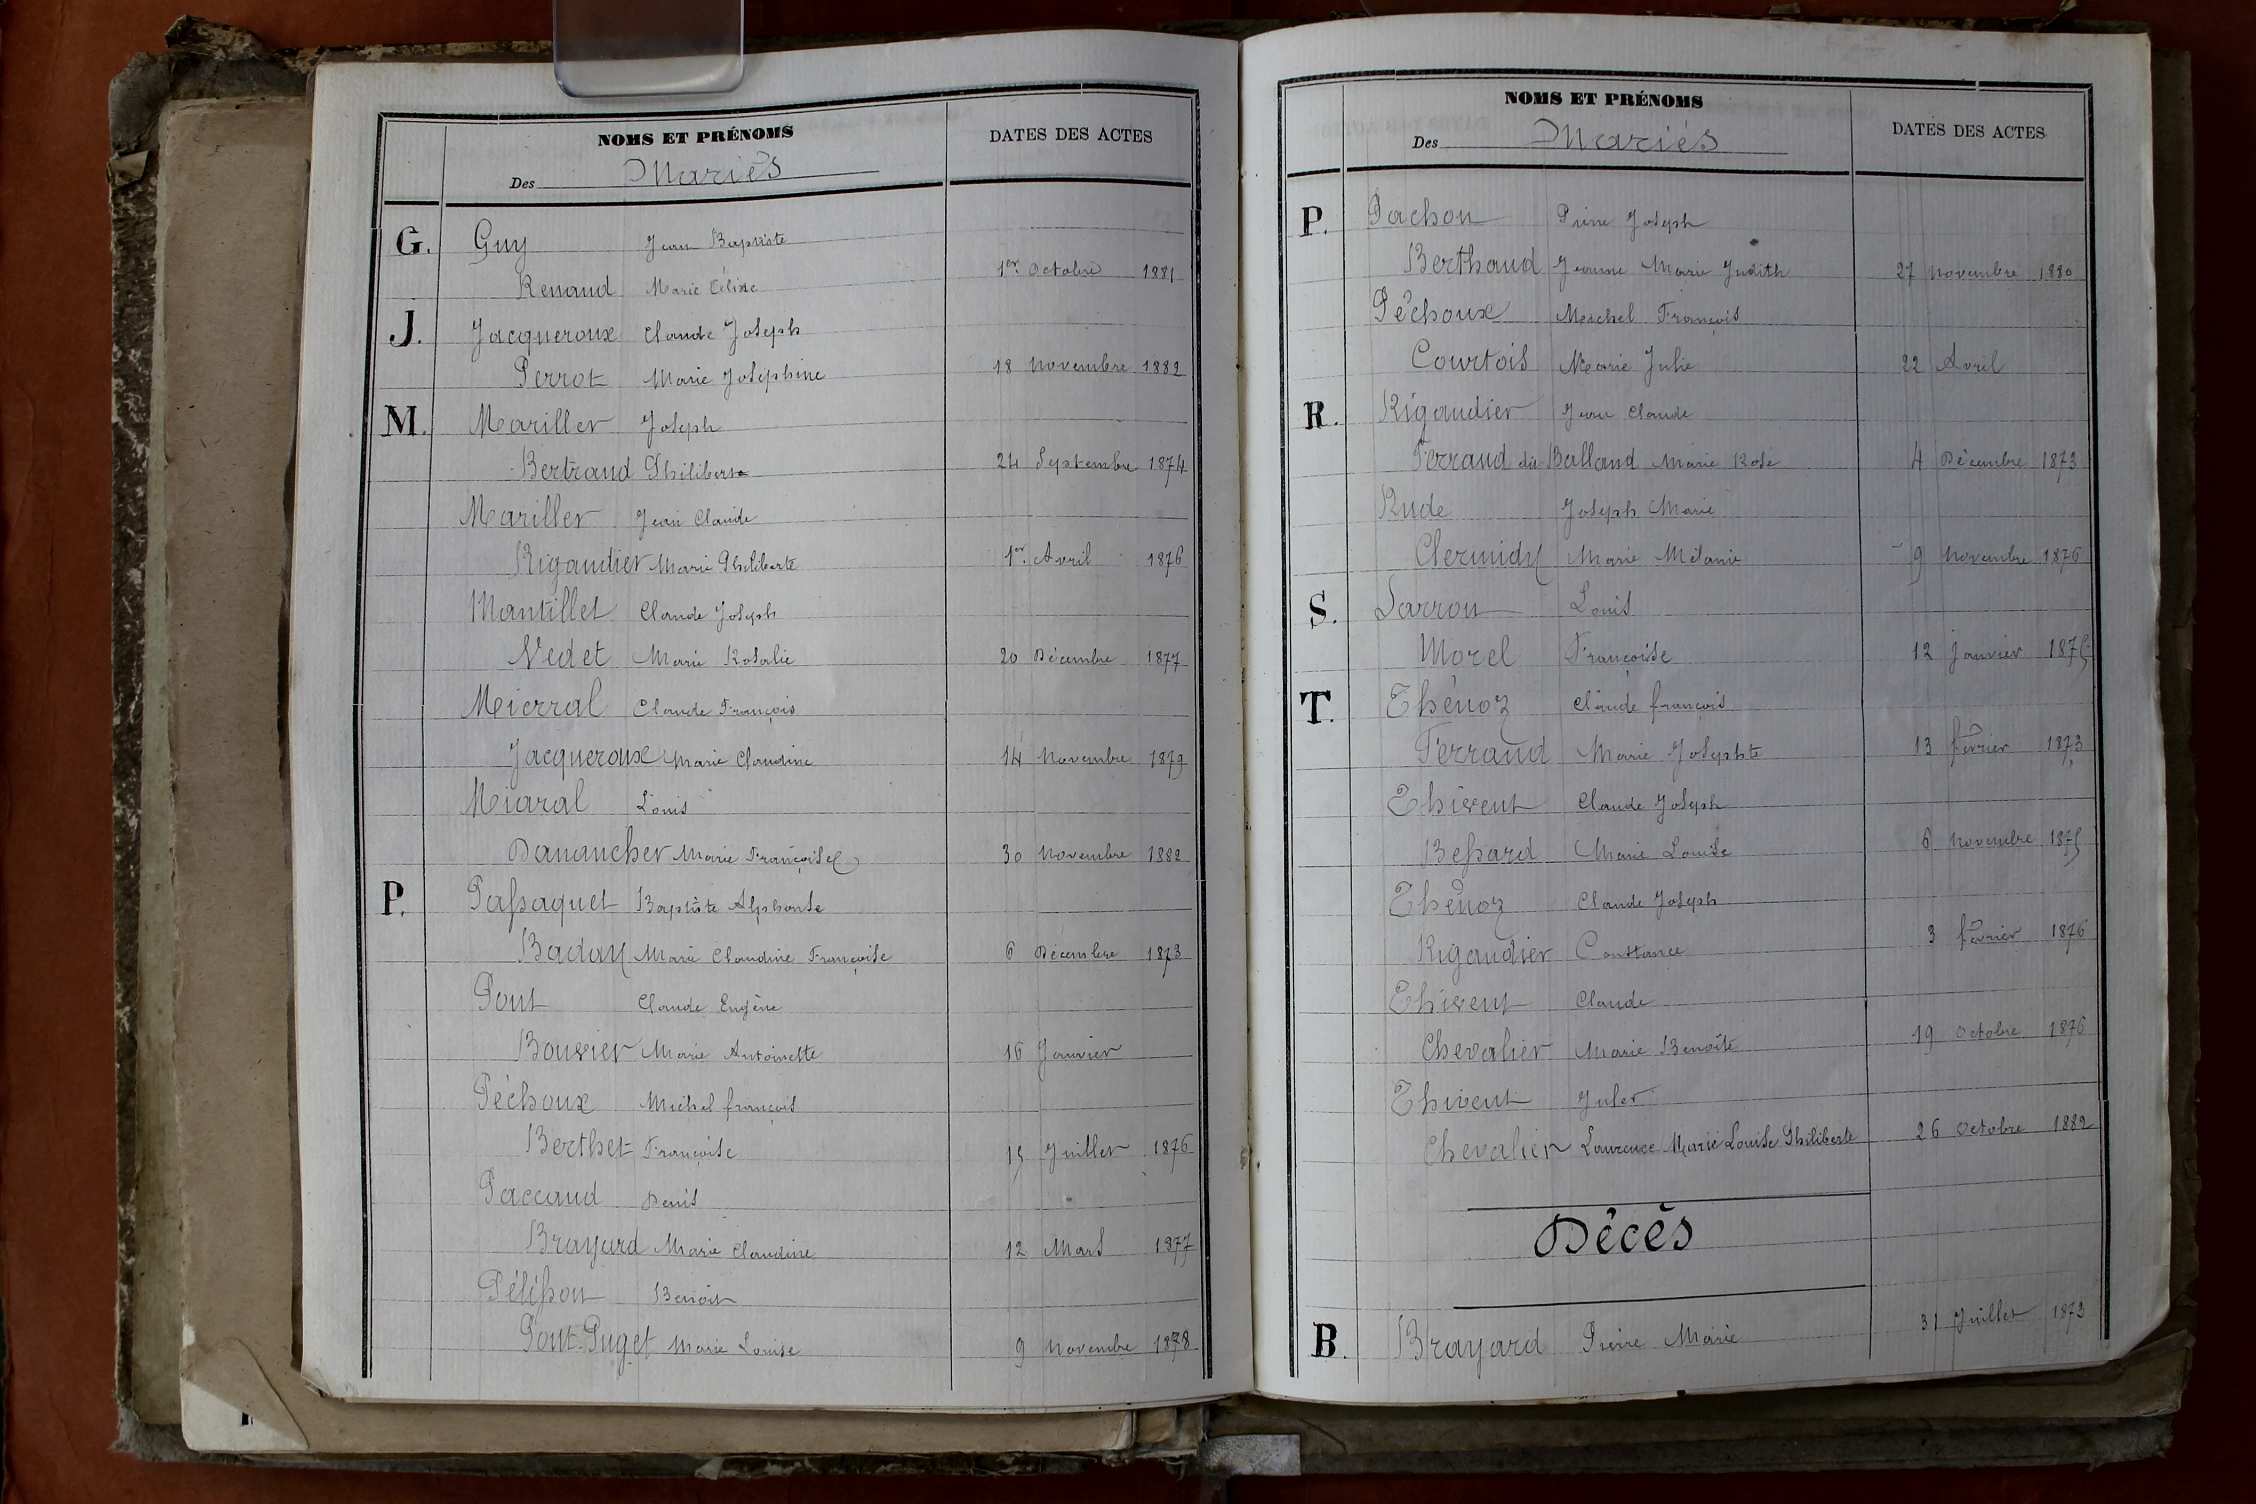 NOMS ET PRÉNOMS DATES DES ACTES
Des Mariés
G. Guy Jean Baptiste
Renaud Marie Céline 1er. Octobre 1881
J. Jacqueroux Claude Joseph
Perrot Marie Joséphine 18 Novembre 1882
M. Mariller Joseph
Bertrand Philiberte 24 Septembre 1874
Mariller Jean Claude
Rigaudier Marie Philiberte 1er. Avril 1876
Mantillet Claude Joseph
Vedet Marie Rosalie 20 Décembre 1877
Mierral Claude François
Jacqueroux Marie Claudine 14 Novembre 1879
Miaral Louis
Danancher Marie Françoise 30 Novembre 1882
P. Passaquet Baptiste Alphonse
Baday Marie Claudine Françoise 6 Décembre 1873
Pont Claude Eugène
Bouvier Marie Antoinette 16 Janvier
Péchoux Michel françois
Berthet Françoise 15 Juillet 1876
Paccaud Denis
Brayard Marie Claudine 12 Mars 1877
Pélisson Benoit
Pont-Puget Marie Louise 9 Novembre 1878
NOMS ET PRÉNOMS DATES DES ACTES
Des Mariés
P. Pachon Pierre Joseph
Berthaud Jeanne Marie Judith 27 Novembre 1880
Péchoux Michel François
Courtois Marie Julie 22 Avril
R. Rigaudier Jean Claude
Ferraud dit Balland Marie Rose 4 Décembre 1873
Rude Joseph Marie
Clermidy Marie Mélanie 9 Novembre 1876
S. Sarron Louis
Morel Françoise 12 Janvier 1875
T. Thénoz Claude françois
Ferraud Marie Josephte 13 février 1873
Thivent Claude Joseph
Bessard Marie Louise 6 Novembre 1875
Thénoz Claude Joseph
Rigaudier Constance 3 février 1876
Thivent Claude
Chevalier Marie Benoîte 19 Octobre 1876
Thivent Jules
Chevalier Laurence Marie Louise Philiberte 26 Octobre 1882
Décès
B. Brayard Pierre Marie 31 Juillet 1873